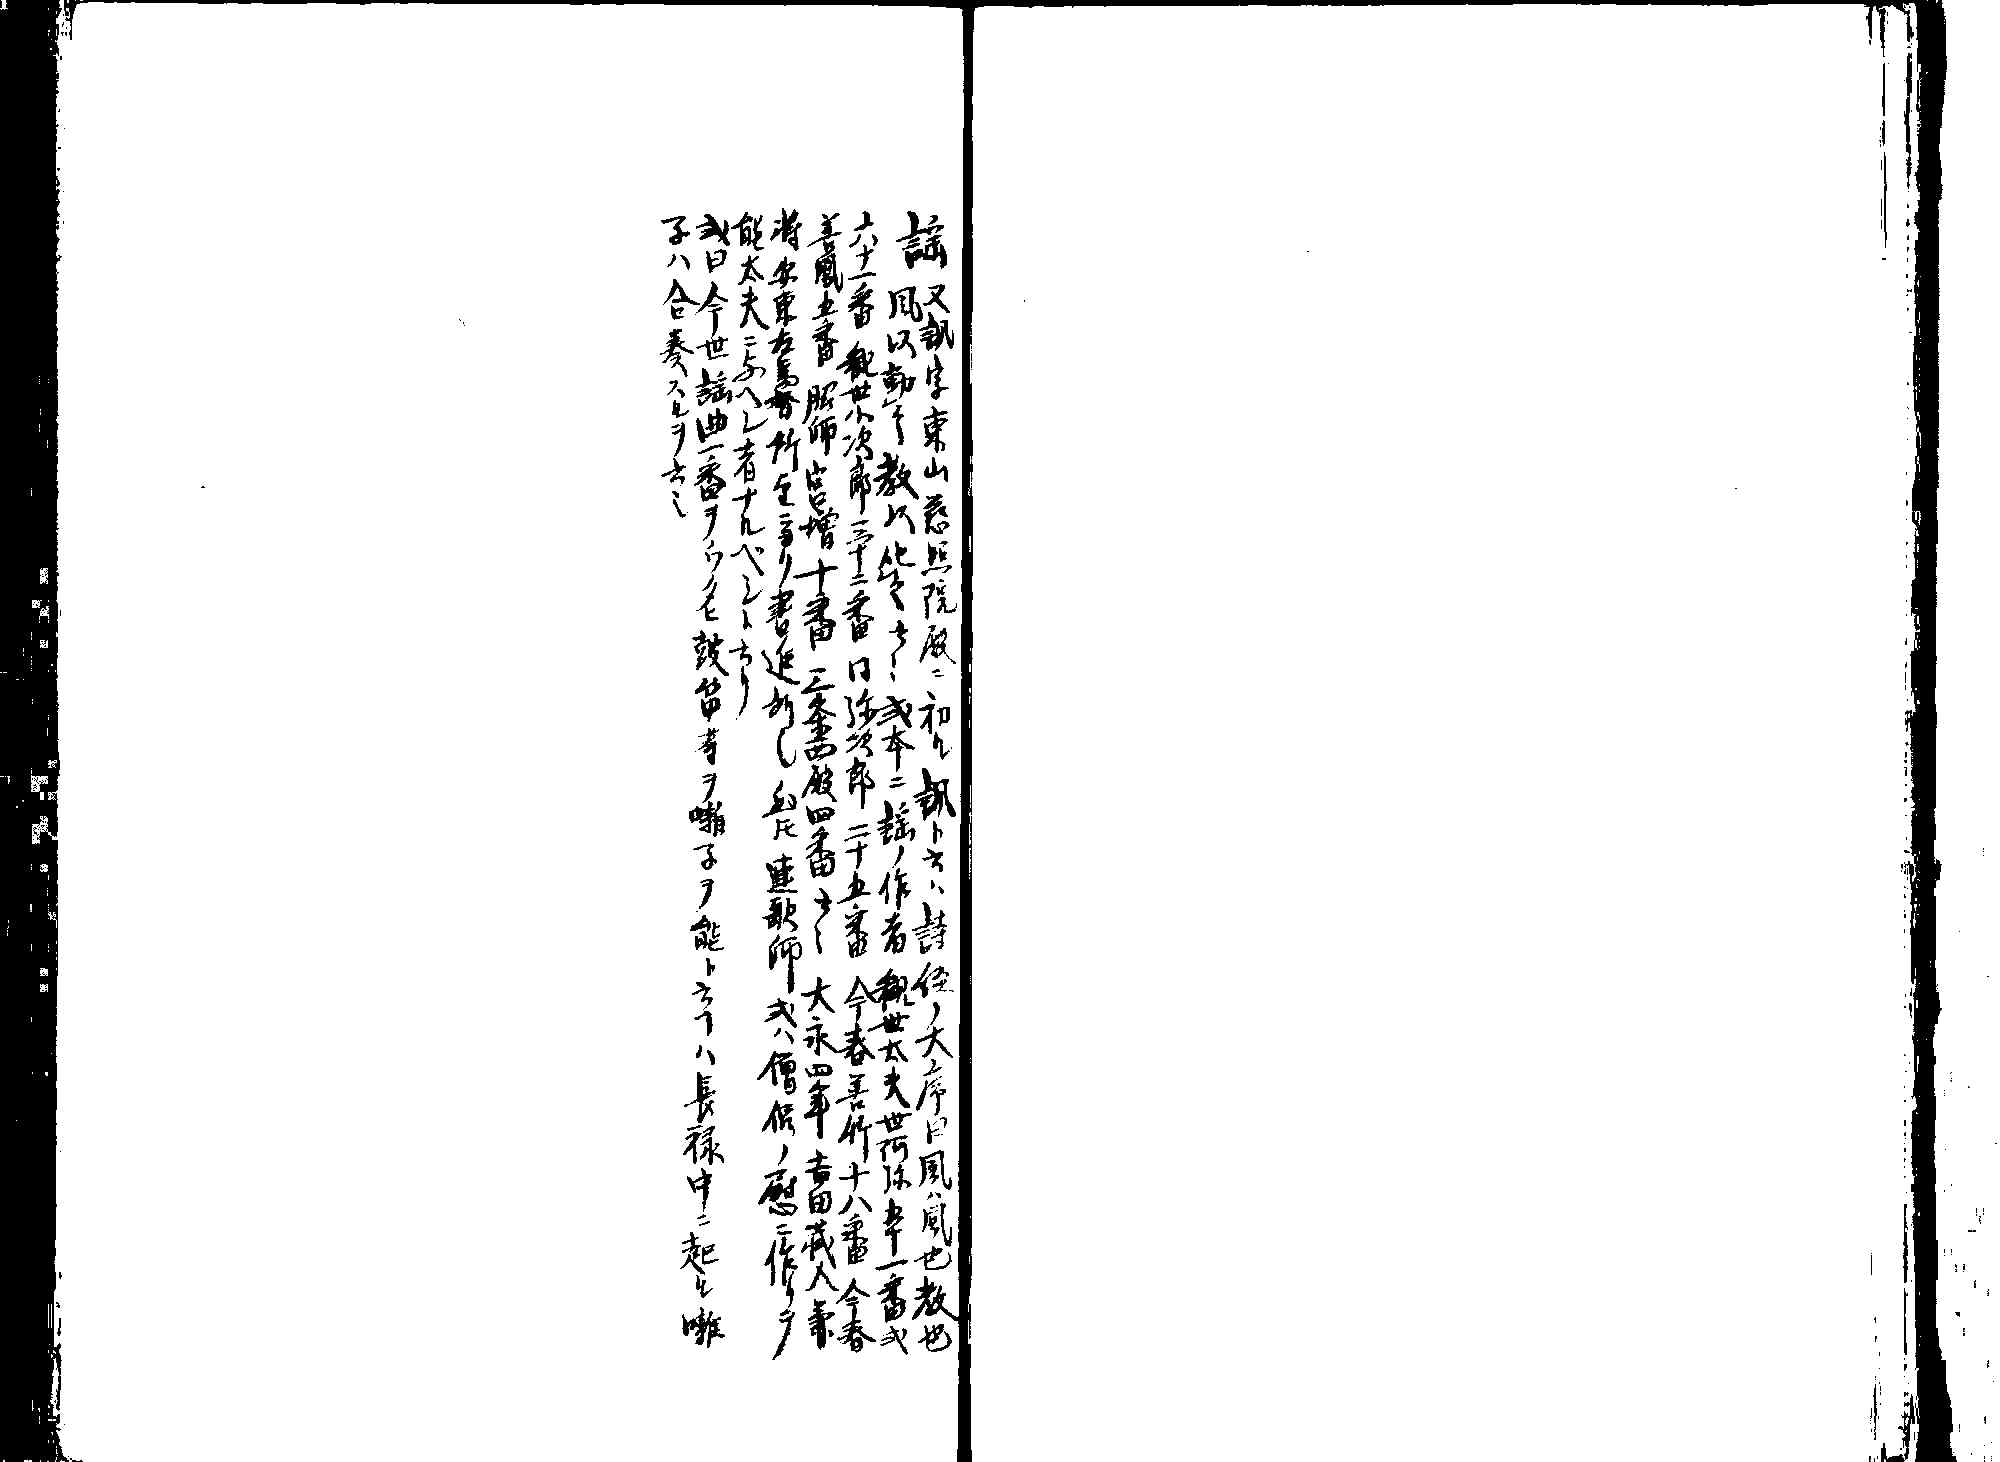 謡 又諷字東山慈照院殿ニ初ル諷ト云ハ詩経ノ大序曰風ハ風也教也
風以動之教以化之云〻或本ニ謡ノ作者観世太夫世阿弥五十一番或
六十一番観世小次郎三十二番同弥次郎二十五番今春善竹十八番今春
善鳳五番脇師宮増十番三条西殿四番云〻大永四年吉田蔵人兼
将安東左馬督所望ニヨリ書進所也然ドモ連歌師或ハ僧侶ノ慰ニ作リテ
能太夫ニ与ヘシ者ナルベシト云リ
或曰今世謡曲一番ヲウタヒ鼓笛等ヲ囃子ヲ能ト云フハ長禄中ニ起ル囃
子ハ合奏スルヲ云〻